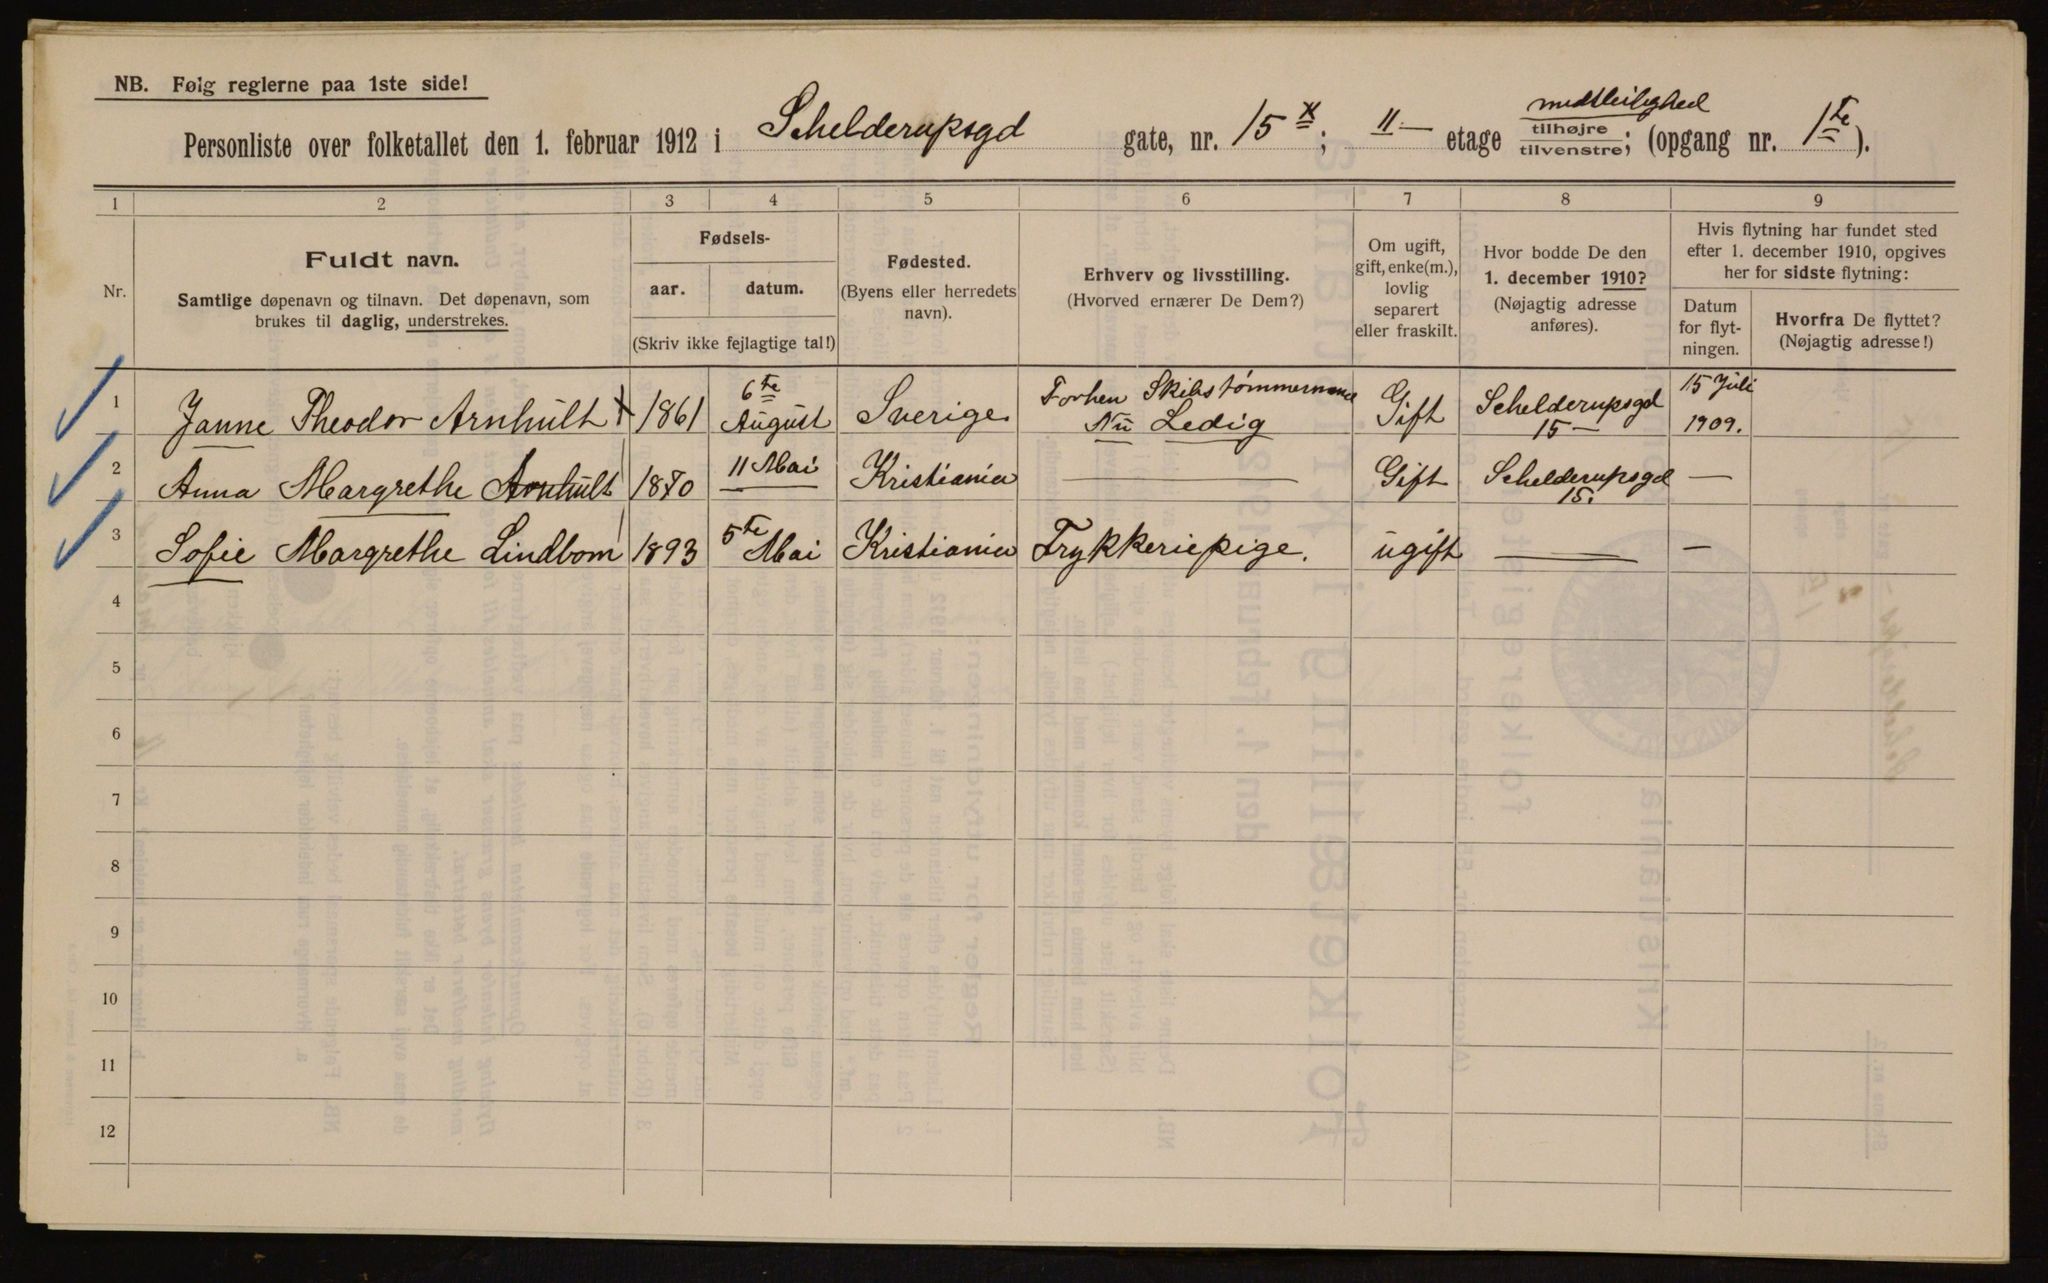 NB. Følg reglerne paa 1ste side!
Personliste over folketallet den 1. februar 1912 i Schelderupsgd gate, nr. 15 x; II — etage midtleilighed tilhøjre tilvenstre; (opgang nr. 1te).
1 2 3 4 5 6 7 8 9
Nr.
Fuldt navn.
Samtlige døpenavn og tilnavn. Det døpenavn, som
brukes til daglig, understrekes.
Fødsels-
aar. datum.
(Skriv ikke fejlagtige tal!)
Fødested.
(Byens eller herredets
navn).
Erhverv og livsstilling.
(Hvorved ernærer De Dem?)
Om ugift,
gift, enke(m.),
lovlig
separert
eller fraskilt.
Hvor bodde De den
1. december 1910?
(Nøjagtig adresse
anføres).
Hvis flytning har fundet sted
efter 1. december 1910, opgives
her for sidste flytning:
Datum
for flyt-
ningen.
Hvorfra De flyttet?
(Nøjagtig adresse!)
1 Janne Theodor Arnhult x 1861 6te August Sverige Forhen Skibstømmermand Nu Ledig Gift Schelderupsgd 15 — 15 Juli 1909.
2 Anna Margrethe Arnhult 1870 11 Mai Kristiania — Gift Schelderupsgd 15. —
3 Sofie Margrethe Lindbom 1893 5te Mai Kristiania Trykkeripige. ugift — —
4
5
6
7
8
9
10
11
12